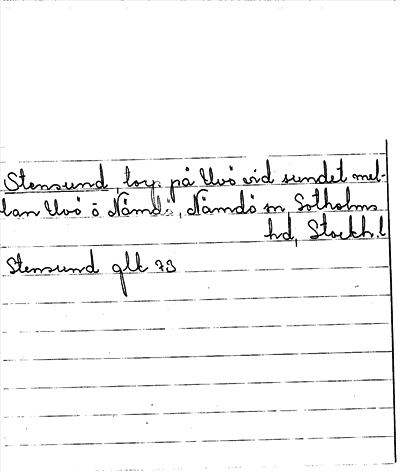 Stensund, torp på Uvö vid sundet mel-
lan Uvö o Nämdö, Nämdö sn Sotholms
hd, Stockh.l
Stensund glk 73